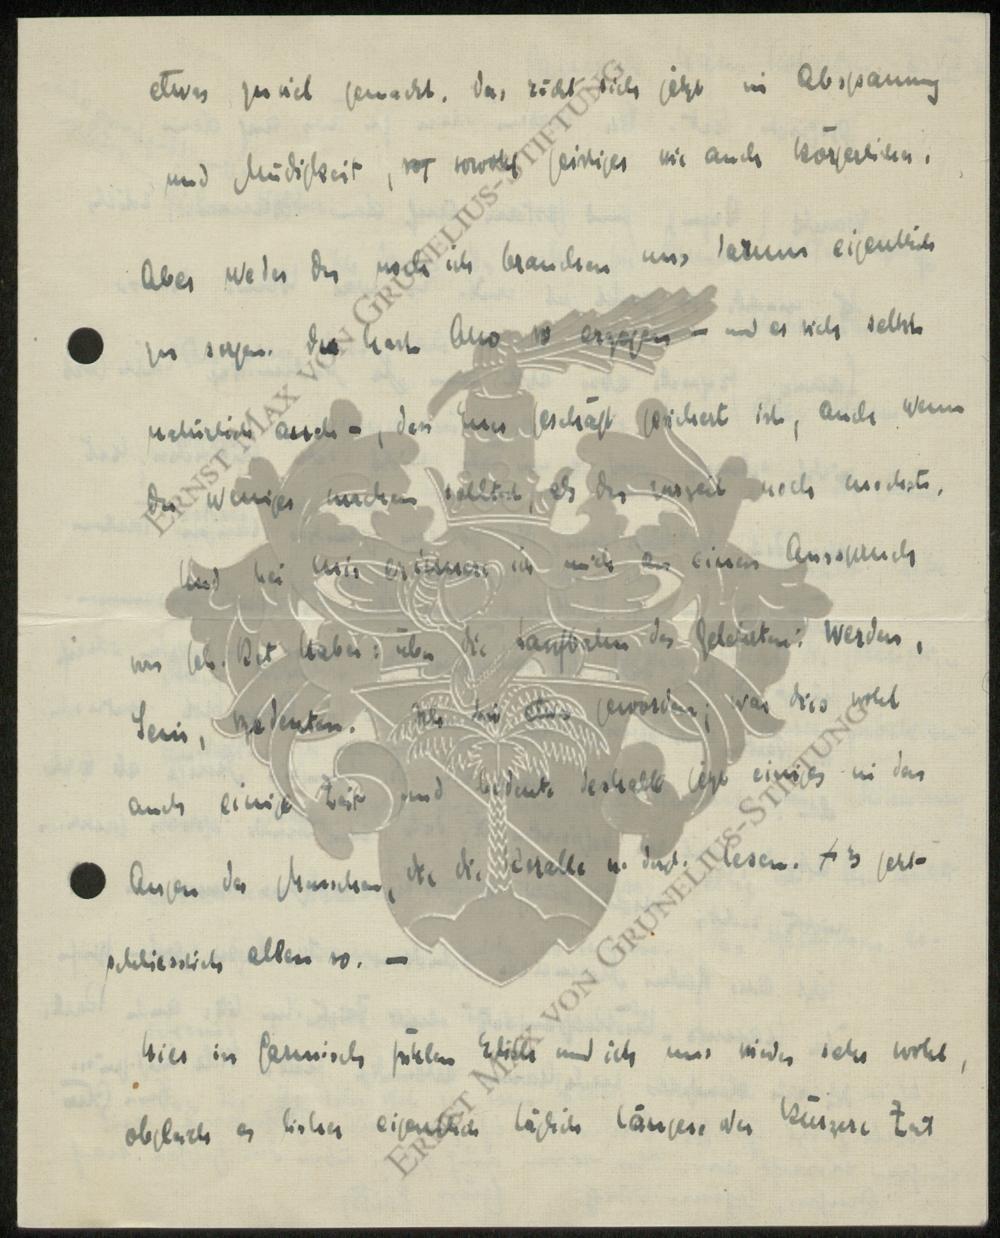 etwas zu viel gemacht. das rächt sich jetzt in Abspannung
und Müdigkeit, sowohl geistiges wie auch körperlichen.
Aber weder du noch ich brauchen uns darum eigentlich
zu sorgen. du hast Also so — und es sich selbst
natürlich auch —, dass Geschäft gesichert ist, auch wenn
du weniger machen solltest, als du zurzeit noch machst.
Und bei mir erinnere ich mich an einen Ausspruch
von über die des Gelehrten: Werden,
Sein, Bedeuten. Ich bin etwas geworden; war dies wohl
auch einige Zeit und bedeute deshalb jetzt einiges in den
Augen der Menschen, die die lesen. geht
schliesslich allen so. —
Hier in Garmisch fühlen Edith und ich uns wieder sehr wohl,
obgleich es bisher eigentlich täglich längere oder kürzere Zeit
ERNST MAX VON GRUNELIUS-STIFTUNG
ERNST MAX VON GRUNELIUS-STIFTUNG